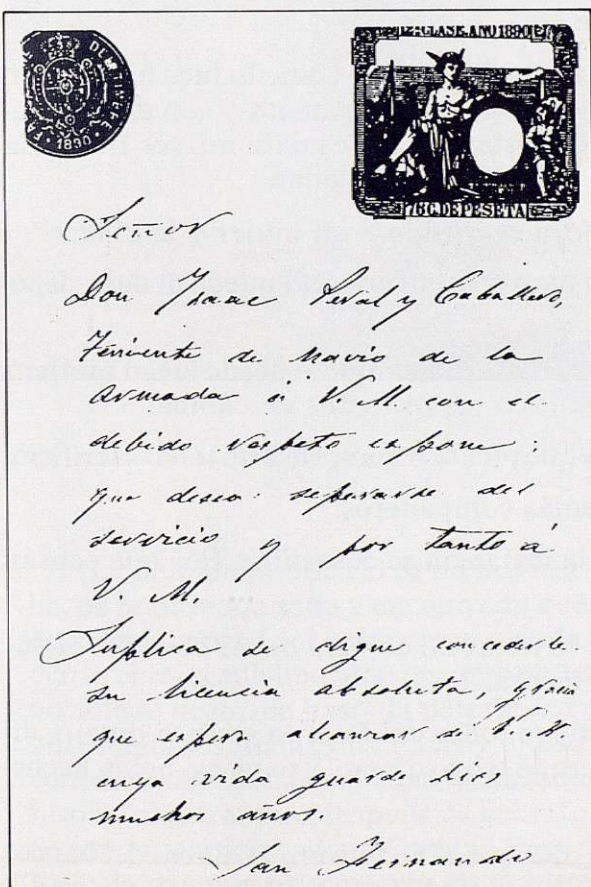 1890
12ª CLASE. AÑO 1890
75 C. DE PESETA
Señor
Don Isaac Peral y Caballero,
Teniente de navio de la
Armada á V. M. con el
debido respeto expone:
que desea separarse del
servicio y por tanto á
V. M.
Suplica se digne concederle
su licencia absoluta, gracia
que espera alcanzar de V. M.
cuya vida guarde Dios
muchos años.
San Fernando